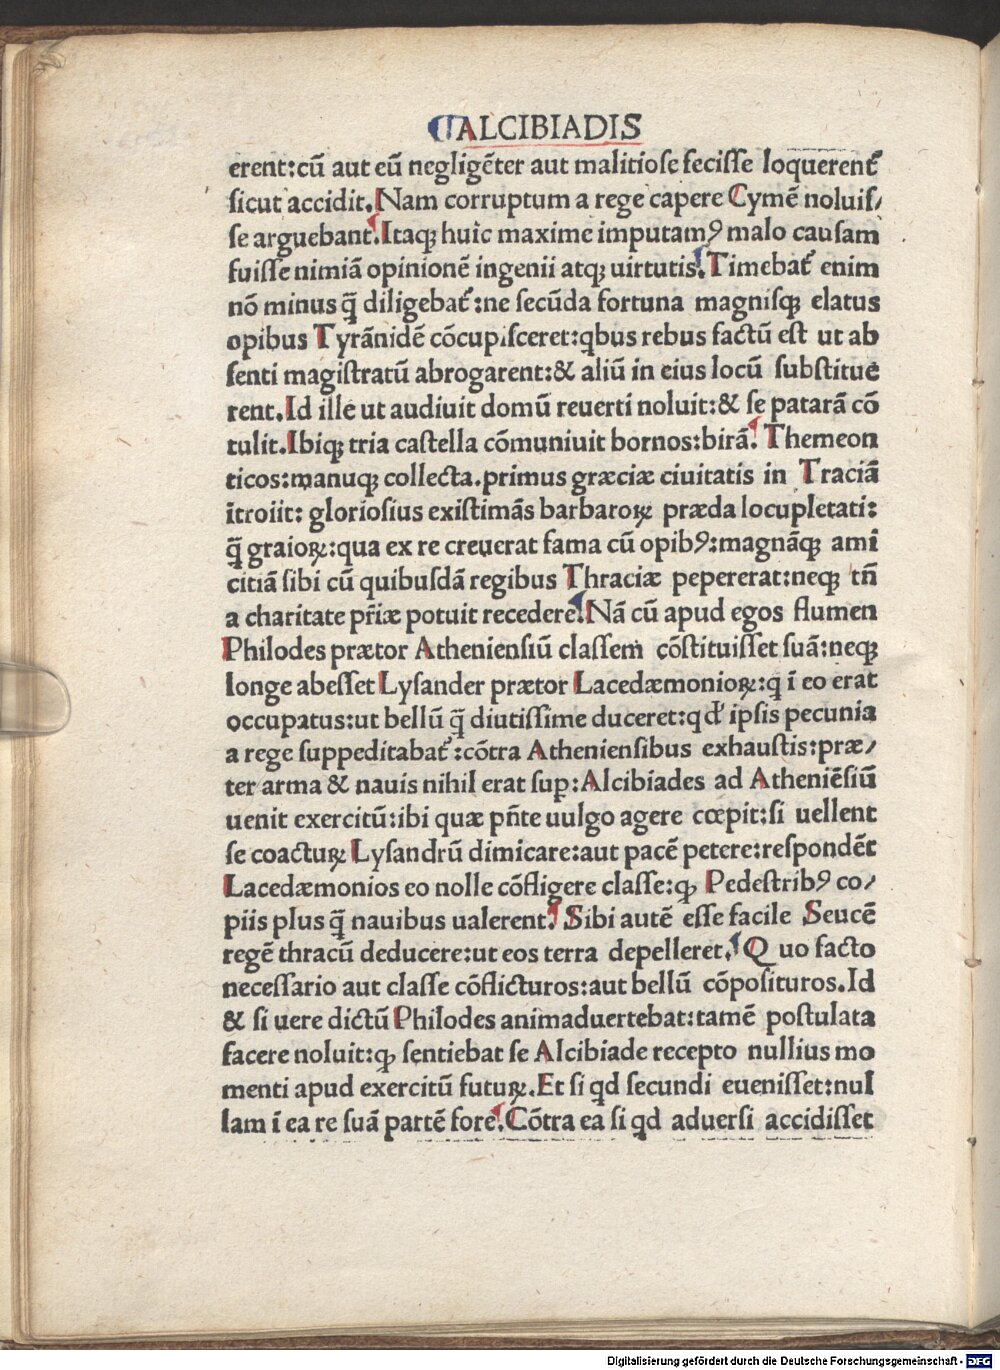 ALCIBIADIS
erent:cū aut eū negligēter aut malitiose fecisse loquerent᷑
sicut accidit.Nam corruptum a rege capere Cymē noluis/
se arguebant.Itaqꝫ huic maxime imputamꝰ malo causam
fuisse nimiā opinionē ingenii atqꝫ uirtutis.Timebat᷑ enim
nō minus q̄ȝ diligebat᷑:ne secūda fortuna magnisqꝫ elatus
opibus Tyrānidē cōcupisceret:qbus rebus factū est ut ab
senti magistratū abrogarent:& aliū in eius locū substitue
rent.Id ille ut audiuit domū reuerti noluit:& se patarā cō
tulit.Ibiqꝫ tria castella cōmuniuit bornos:birā.Themeon
ticos:manuqꝫ collecta.primus græciæ ciuitatis in Traciā
ītroiit: gloriosius existimās barbaroꝝ præda locupletati:
q̄ȝ graioꝝ:qua ex re creuerat fama cū opibꝰ:magnāqꝫ ami
citiā sibi cū quibusdā regibus Thraciæ pepererat:neqꝫ tn̄
a charitate pr̄iæ potuit recedere.Nā cū apud egos flumen
Philodes prætor Atheniensiū classem cōstituisset suā:neqꝫ
longe abesset Lysander prætor Lacedæmonioꝝ:q ī eo erat
occupatus:ut bellū q̄ȝ diutissime duceret:qd' ipsis pecunia
a rege suppeditabat᷑:cōtra Atheniensibus exhaustis:præ/
ter arma & nauis nihil erat suꝑ:Alcibiades ad Atheniēsiū
uenit exercitū:ibi quæ pn̄te uulgo agere cœpit:si uellent
se coacturꝝ Lysandrū dimicare:aut pacē petere:respondēt
Lacedæmonios eo nolle cōfligere classe:ꝙ Pedestribꝰ co/
piis plus q̄ȝ nauibus ualerent.Sibi autē esse facile Seucē
regē thracū deducere:ut eos terra depelleret.Quo facto
necessario aut classe cōflicturos:aut bellū cōposituros.Id
& si uere dictū Philodes animaduertebat:tamē postulata
facere noluit:ꝙ sentiebat se Alcibiade recepto nullius mo
menti apud exercitū futuꝝ.Et si qd secundi euenisset:nul
lam ī ea re suā partē fore.Cōtra ea si qd aduersi accidisset
Digitalisierung gefördert durch die Deutsche Forschungsgemeinschaft - DFG